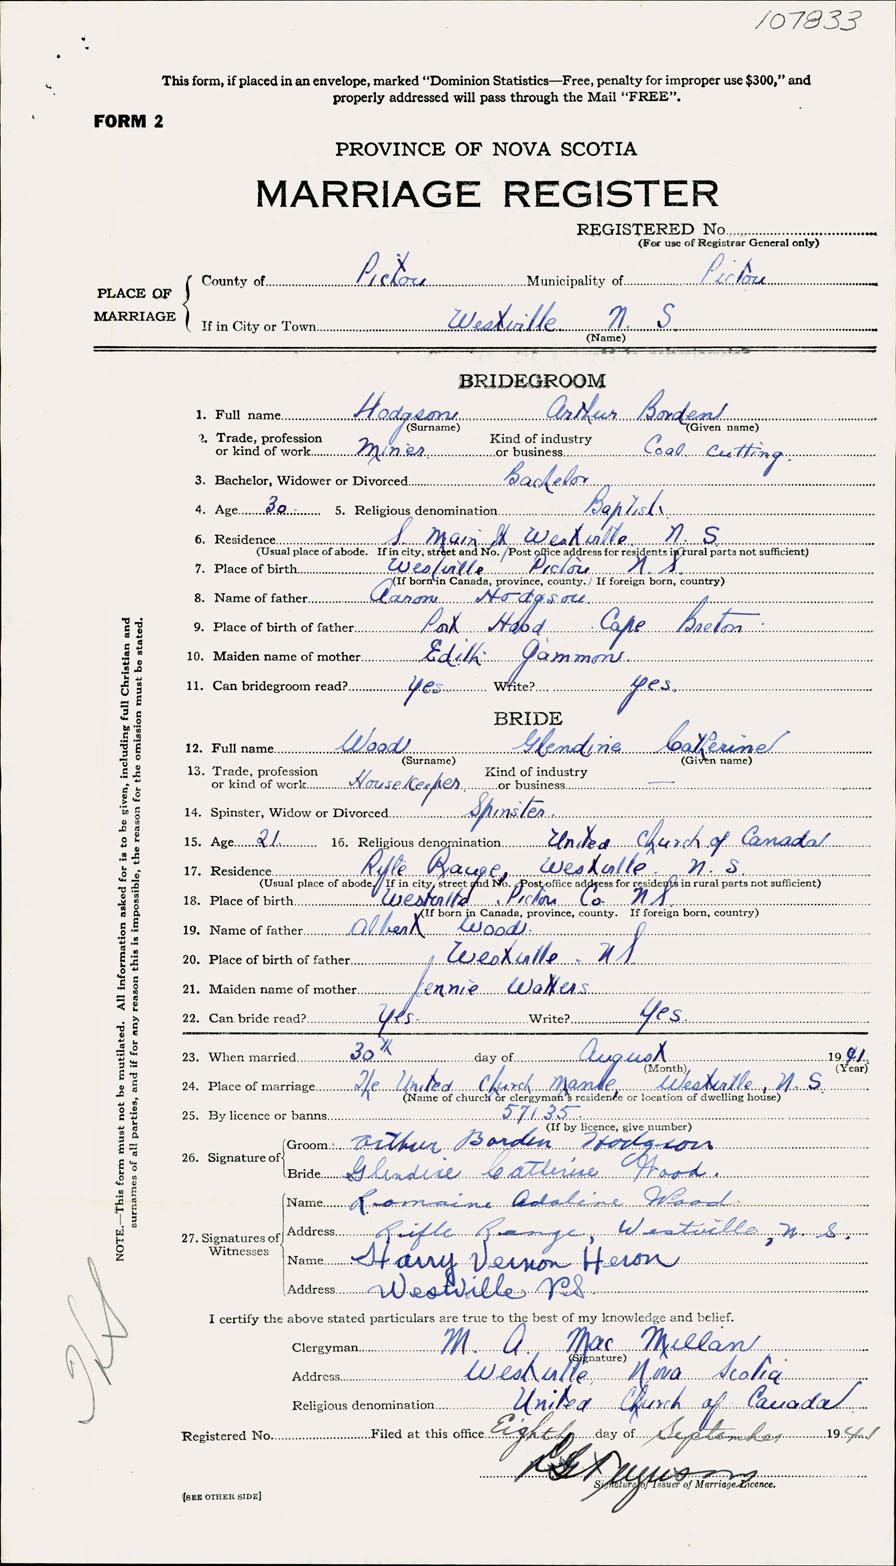 107833
This form, if placed in an envelope, marked “Dominion Statistics—Free, penalty for improper use $300,” and
properly addressed will pass through the Mail “FREE”.
FORM 2
PROVINCE OF NOVA SCOTIA
MARRIAGE REGISTER
REGISTERED No.
(For use of Registrar General only)
PLACE OF MARRIAGE
County of Pictou Municipality of Pictou
If in City or Town Westville N. S.
(Name)
BRIDEGROOM
1. Full name Hodgson Arthur Borden
(Surname) (Given name)
2. Trade, profession or kind of work Miner Kind of industry or business Coal cutting.
3. Bachelor, Widower or Divorced Bachelor
4. Age 30 5. Religious denomination Baptist
6. Residence S Main St Westville N. S.
(Usual place of abode. If in city, street and No. Post office address for residents in rural parts not sufficient)
7. Place of birth Westville Pictou N S
(If born in Canada, province, county. If foreign born, country)
8. Name of father Aaron Hodgson
9. Place of birth of father Port Hood Cape Breton
10. Maiden name of mother Edith Gammon
11. Can bridegroom read? yes Write? yes.
BRIDE
12. Full name Wood Glendine Catherine
(Surname) (Given name)
13. Trade, profession or kind of work Housekeeper Kind of industry or business —
14. Spinster, Widow or Divorced Spinster.
15. Age 21. 16. Religious denomination United Church of Canada
17. Residence Rifle Range, Westville. N. S.
(Usual place of abode. If in city, street and No. Post office address for residents in rural parts not sufficient)
18. Place of birth Westville Pictou Co N S
(If born in Canada, province, county. If foreign born, country)
19. Name of father Albert Wood.
20. Place of birth of father Westville. N S
21. Maiden name of mother Jennie Watters
22. Can bride read? Yes. Write? Yes.
23. When married 30th day of August 1941.
(Month) (Year)
24. Place of marriage The United Church Manse, Westville, N. S.
(Name of church or clergyman's residence or location of dwelling house)
25. By licence or banns 57135.
(If by licence, give number)
26. Signature of
Groom: Arthur Borden Hodgson
Bride Glendine Catherine Wood.
27. Signatures of Witnesses
Name Romaine Adaline Wood.
Address Rifle Range, Westville, N. S.
Name Harry Vernon Heron
Address Westville N S
I certify the above stated particulars are true to the best of my knowledge and belief.
Clergyman M. A. Mac Millan
(Signature)
Address Westville, Nova Scotia
Religious denomination United Church of Canada
Registered No. Filed at this office Eighth day of September 1941
Ferguson
Signature of Issuer of Marriage Licence.
[SEE OTHER SIDE]
NOTE.—This form must not be mutilated. All information asked for is to be given, including full Christian and
surnames of all parties, and if for any reason this is impossible, the reason for the omission must be stated.